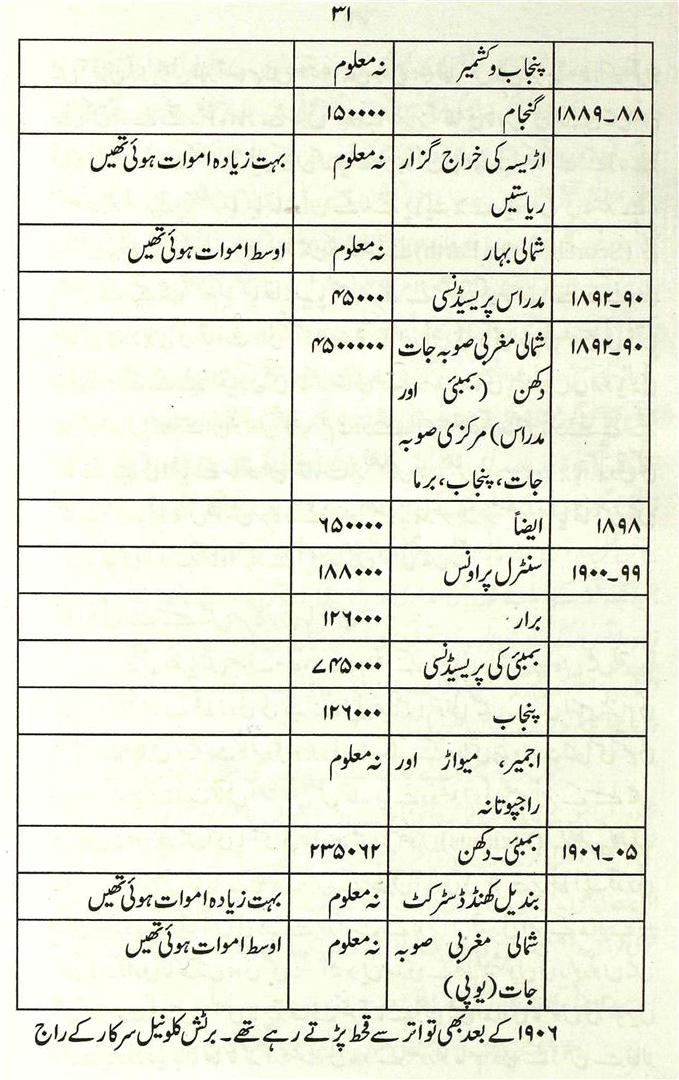 ۳۱
پنجاب و کشمیر نہ معلوم
۱۸۸۹-۸۸ گنجام ۱۵۰۰۰۰
اڑیسہ کی خراج گزار نہ معلوم بہت زیادہ اموات ہوئی تھیں
ریاستیں
شمالی بہار نہ معلوم اوسط اموات ہوئی تھیں
۱۸۹۲-۹۰ مدراس پریسیڈنسی ۴۵۰۰۰
۱۸۹۲-۹۰ شمالی مغربی صوبہ جات ۴۵۰۰۰۰۰
دکھن (بمبئی اور
مدراس) مرکزی صوبہ
جات، پنجاب، برما
۱۸۹۸ ایضاً ۶۵۰۰۰۰
۱۹۰۰-۹۹ سنٹرل پراونس ۱۸۸۰۰۰
برار ۱۲۶۰۰۰
بمبئی کی پریسیڈنسی ۷۴۵۰۰۰
پنجاب ۱۲۶۰۰۰
اجمیر، میواڑ اور نہ معلوم
راجپوتانہ
۱۹۰۶-۰۵ بمبئی۔دکھن ۲۳۵۰۶۲
بندیل کھنڈ ڈسٹرکٹ نہ معلوم بہت زیادہ اموات ہوئی تھیں
شمالی مغربی صوبہ نہ معلوم اوسط اموات ہوئی تھیں
جات (یوپی)
۱۹۰۶ کے بعد بھی تواتر سے قحط پڑتے رہے تھے۔ برٹش کلونیل سرکار کے راج